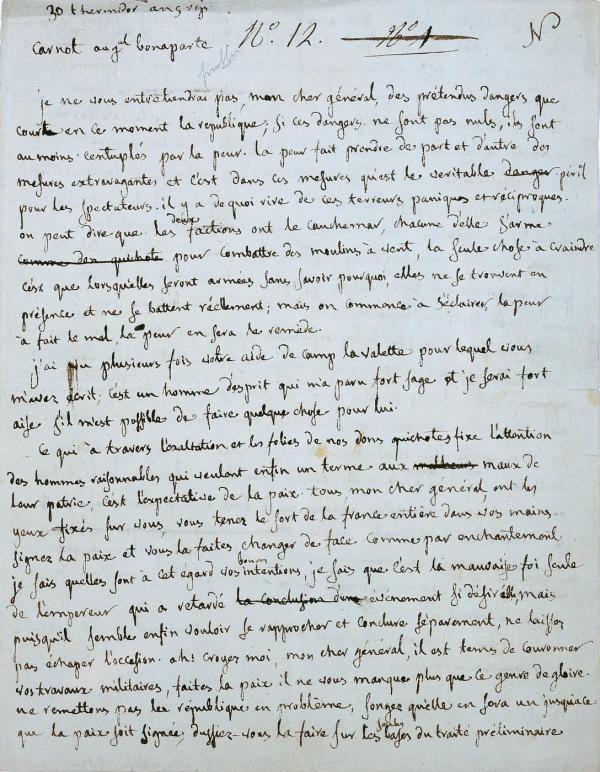 30 thermidor an 5 rep.
Carnot au gal bonaparte No. 12. No. 1 N
je ne vous entretiendrai pas, mon cher général, des prétendus dangers que
court en ce moment la république; si ces dangers ne sont pas nuls, ils sont
au moins centuplés par la peur. la peur fait prendre de part et d'autre des
mesures extravagantes et c'est dans ces mesures qu'est le veritable danger péril
pour les spectateurs. il y a de quoi rire de ces terreurs paniques et réciproques.
on peut dire que les deux factions ont le cauchemar, chacune d'elle s'arme
comme don quichote pour combattre des moulins à vent, la seule chose à craindre
c'est que lorsqu'elles seront armées sans savoir pourquoi, elles ne se trouvent en
présence et ne se battent réellement; mais on commence à s'éclairer, la peur
à fait le mal, la peur en sera le remède.
j'ai vu plusieurs fois votre aide de camp lavalette pour lequel vous
m'avez écrit; c'est un homme d'esprit qui m'a paru fort sage et je serai fort
aise s'il m'est possible de faire quelque chose pour lui.
Ce qui à travers l'exaltation et les folies de nos dons quichotes fixe l'attention
des hommes raisonnables qui veulent enfin un terme aux malheurs maux de
leur patrie, c'est l'expectative de la paix. tous, mon cher général, ont les
yeux fixés sur vous, vous tenez le sort de la france entière dans vos mains.
signez la paix et vous la faites changer de face comme par enchantement.
je sais quelles sont à cet égard vos bonnes intentions, je sais que c'est la mauvaise foi seule
de l'empereur qui a retardé la conclusion d'un évènement si désiré, mais
puisqu'il semble enfin vouloir se rapprocher et conclure séparement, ne laissez
pas échaper l'occasion. ah! croyez moi, mon cher général, il est tems de couronner
vos travaux militaires, faites la paix il ne vous manque plus que ce genre de gloire.
ne remettons pas la république en problème, songez qu'elle en sera un jusqu'à ce
que la paix soit signée; dussiez-vous la faire sur les seules bases du traité préliminaire